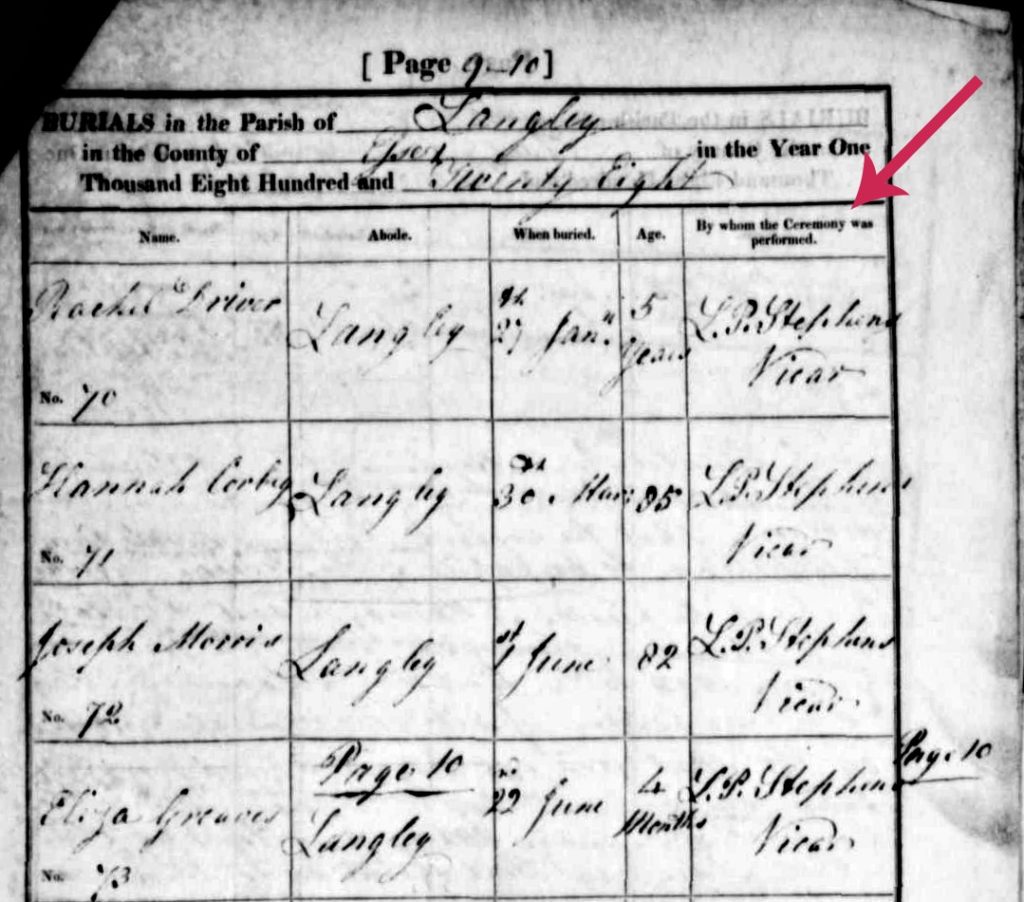 [ Page 9-10 ]
BURIALS in the Parish of Langley
in the County of Essex in the Year One
Thousand Eight Hundred and Twenty Eight
Name. Abode. When buried. Age. By whom the Ceremony was performed.
Rachel Driver
No. 70
Langley
27th Jany
5 Years
L.P. Stephens
Vicar
Hannah Corby
No. 71
Langley
30th Mar:
85
L.P. Stephens
Vicar
Joseph Morris
No. 72
Langley
1st June
82
L.P. Stephens
Vicar
Eliza Greaves
No. 73
Page 10
Langley
22nd June
4 Months
L.P. Stephens
Vicar
Page 10